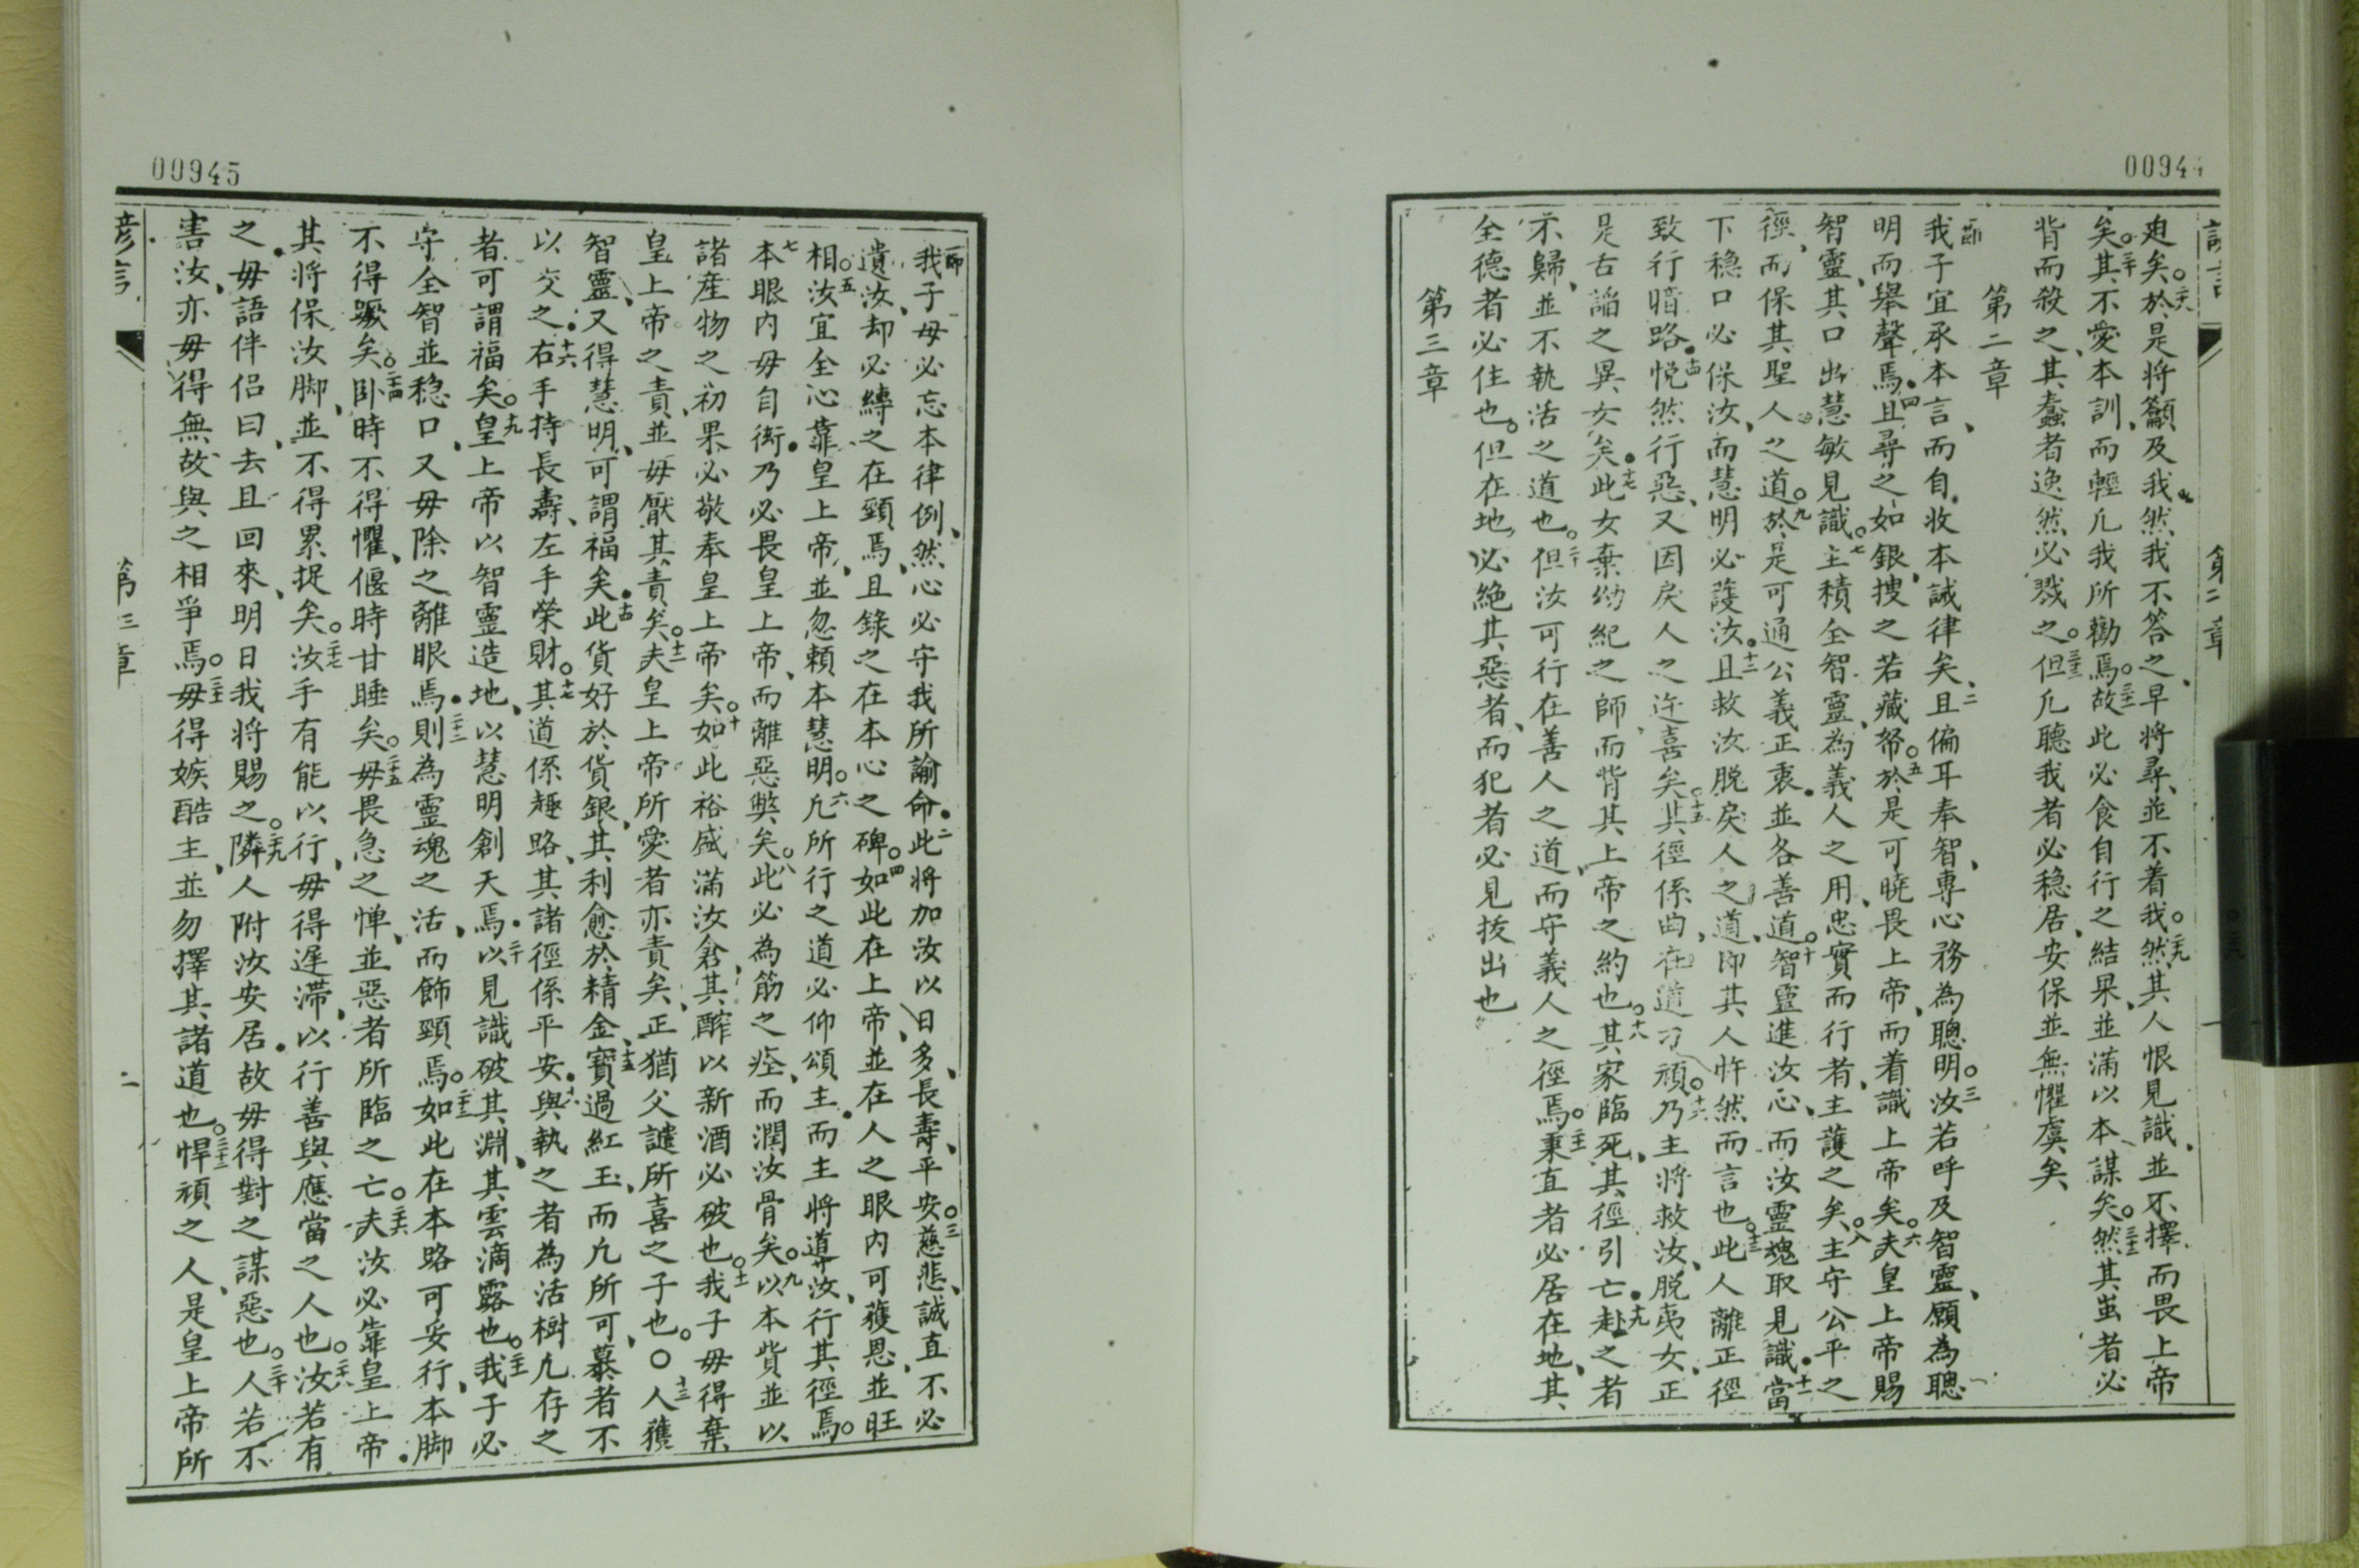 00944
迫矣。二八於是將籲及我、然我不答之、早將尋、並不着我。二九然其人恨見識、並不擇而畏上帝
矣。三十其不愛本訓、而輕凢我所勸焉。三一故此必食自行之結果、並滿以本謀矣。三二然其蚩者必
背而殺之、其蠢者逸然必戮之。三三但凢聽我者必穩居、安保並無懼虞矣
第二章
一節我子宜承本言、而自收本誡律矣、二且偏耳奉智、專心務為聰明。三汝若呼及智靈、願為聰
明而舉聲焉、四且尋之如銀、搜之若藏帑。五於是可曉畏上帝、而着識上帝矣。六夫皇上帝賜
智靈、其口出慧敏見識。七主積全智靈、為義人之用、忠實而行者、主護之矣。八主守公平之
徑、而保其聖人之道。九於是可通公義正衷、並各善道。十智靈進汝心、而汝靈魂取見識、十一當
下穩口必保汝、而慧明必護汝、十二且救汝脱戾人之道、即其人忤然而言也。十三此人離正徑
致行暗路、十四悦然行惡、又因戾人之迕喜矣。十五其徑係曲、在道刁頑。十六乃主將救汝、脱夷女、正
是古謟之異女矣。十七此女棄幼紀之師、而背其上帝之約也。十八其家臨死、其徑引亡、十九赴之者
不歸、並不執活之道也。二十但汝可行在善人之道、而守義人之徑焉。二一秉直者必居在地、其
全德者必住也。但在地、必絶其惡者、而犯者必見拔出也
第三章
00945
一節我子毋必忘本律例、然心必守我所諭命、二此將加汝以日多、長壽、平安。三慈悲、誠直不必
遺汝、却必縛之在頸焉、且錄之在本心之碑。四如此在上帝、並在人之眼内可獲恩、並旺
相。五汝宜全沁靠皇上帝、並忽賴本慧明。六凢所行之道必仰頌主、而主將導汝、行其徑焉。
七本眼内毋自衒、乃必畏皇上帝、而離惡獘矣。八此必為筋之痊、而潤汝骨矣。九以本貲並以
諸産物之初果必敬奉皇上帝矣。十如此裕盛滿汝倉、其醡以新酒必破也。十一我子毋得棄
皇上帝之責、並毋厭其責矣。十二夫皇上帝所愛者亦責矣、正猶父譴所喜之子也。〇十三人獲
智靈、又得慧明、可謂福矣、十四此貨好於貨銀、其利愈於精金、十五寳過紅玉、而凢所可慕者不
以交之。十六右手持長壽、左手榮財。十七其道係趣路、其諸徑係平安、十八與執之者為活樹凢存之
者可謂福矣。十九皇上帝以智靈造地、以慧明創天焉、二十以見識破其淵、其雲滴露也。二一我子必
守全智並穩口、又毋除之離眼焉、二二則為靈魂之活、而飾頸焉。二三如此在本路可妥行、本脚
不得蹶矣。二四卧時不得懼、偃時甘睡矣。二五毋畏急之憚、並惡者所臨之亡。二六夫汝必靠皇上帝、
其將保汝脚、並不得累捉矣。二七汝手有能以行、毋得遲滯、以行善與應當之人也。二八汝若有
之、毋語伴侣曰、去且回來、明日我將賜之。二九隣人附汝安居、故毋得對之謀惡也。三十人若不
害汝、亦毋得無故與之相爭焉。三一毋得嫉酷主、並勿擇其諸道也。三二悍頑之人、是皇上帝所
箴言
第三章
二